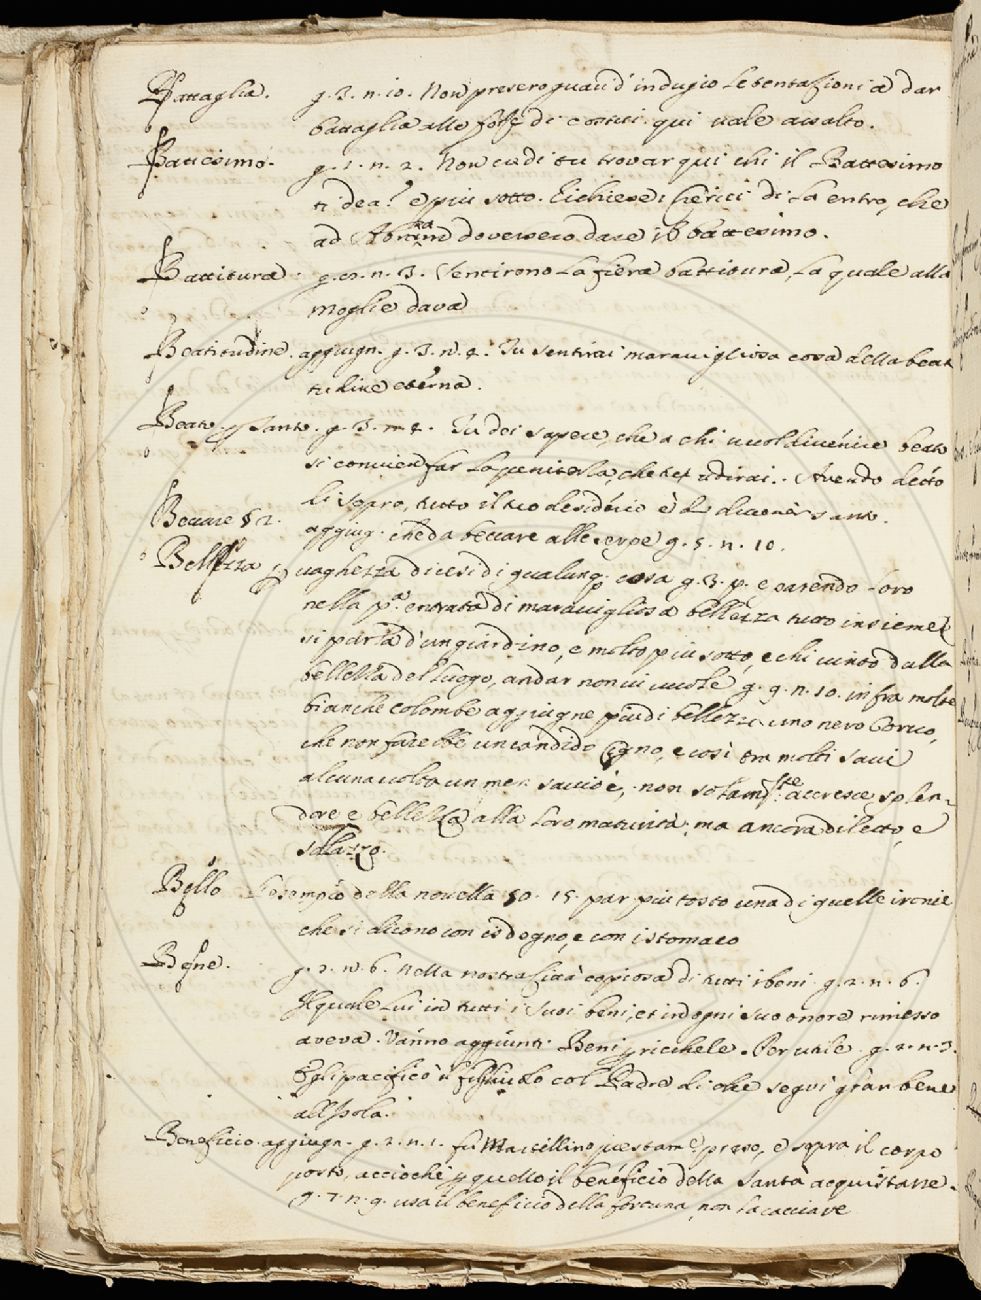 Battaglia. g. 3. n. 10. Non preser guari d'indugio le tentazioni a dar
battaglia alle forze di costui. qui vale assalto.
Battesimo. g. 1. n. 2. Non credi tu trovar qui chi il Battesimo
ti dea? e più sotto. Richiese i cherici di là entro, che
ad Abraam dovessero dare il battesimo.
Battitura. g. n. 3. Sentirono la fiera battitura, la quale alla
moglie dava
Beatitudine. aggiugn. g. 3. n. 4. Tu sentirai maravigliosa cosa della beati
tudine eterna.
Beato p Santo. g. 3. n. 4. Tu dei sapere, che a chi vuol divenire beato
si convien far la penitenza, che tu udirai. Avendo detto
di sopra, tutto il tuo desidério è di divenir santo.
Beccare § 2. aggiug. che da beccare alle serpe g. 5. n. 10.
Bellezza p vaghezza dicesi di qualunq. cosa g. 3. p. e parendo loro
nella p.a entrata di maravigliosa bellezza tutto insieme
si parla d'un giardino, e molto più sotto, e chi vinto dalla
bellezza del luogo, andar non vi vuole g. 9. n. 10. infra molte
bianche colombe aggiugne più di bellezza uno nero Corvo,
che non farebbe un candido Cigno, e così tra molti savi
alcuna volta un men savio è, non solam.te accresce splen-
dore e bellezza alla loro maturità, ma ancora diletto, e
sollazzo.
Bello L'esempio della novella 50. 15. par più tosto una di quelle ironie
che si dicono con isdegno, e con istomaco
Bene. g. 2. n. 6. Nella nostra Città copiosa di tutti i beni. g. 2. n. 6.
Il quale lui in tutti i suoi beni, et in ogni suo onore rimesso
aveva. Vanno aggiunti Beni p ricchezze. Per utile. g. 2. n. 3.
Egli pacificò il figliuolo col Padre di che seguì gran bene
all'Isola.
Beneficio. aggiugn. g. 2. n. 1. fu Martellino prestam.e preso, e sopra il corpo
posto, acciochè p quello il beneficio della Santà acquistasse.
g. 7. n. 9. usa il beneficio della fortuna, non la cacciare